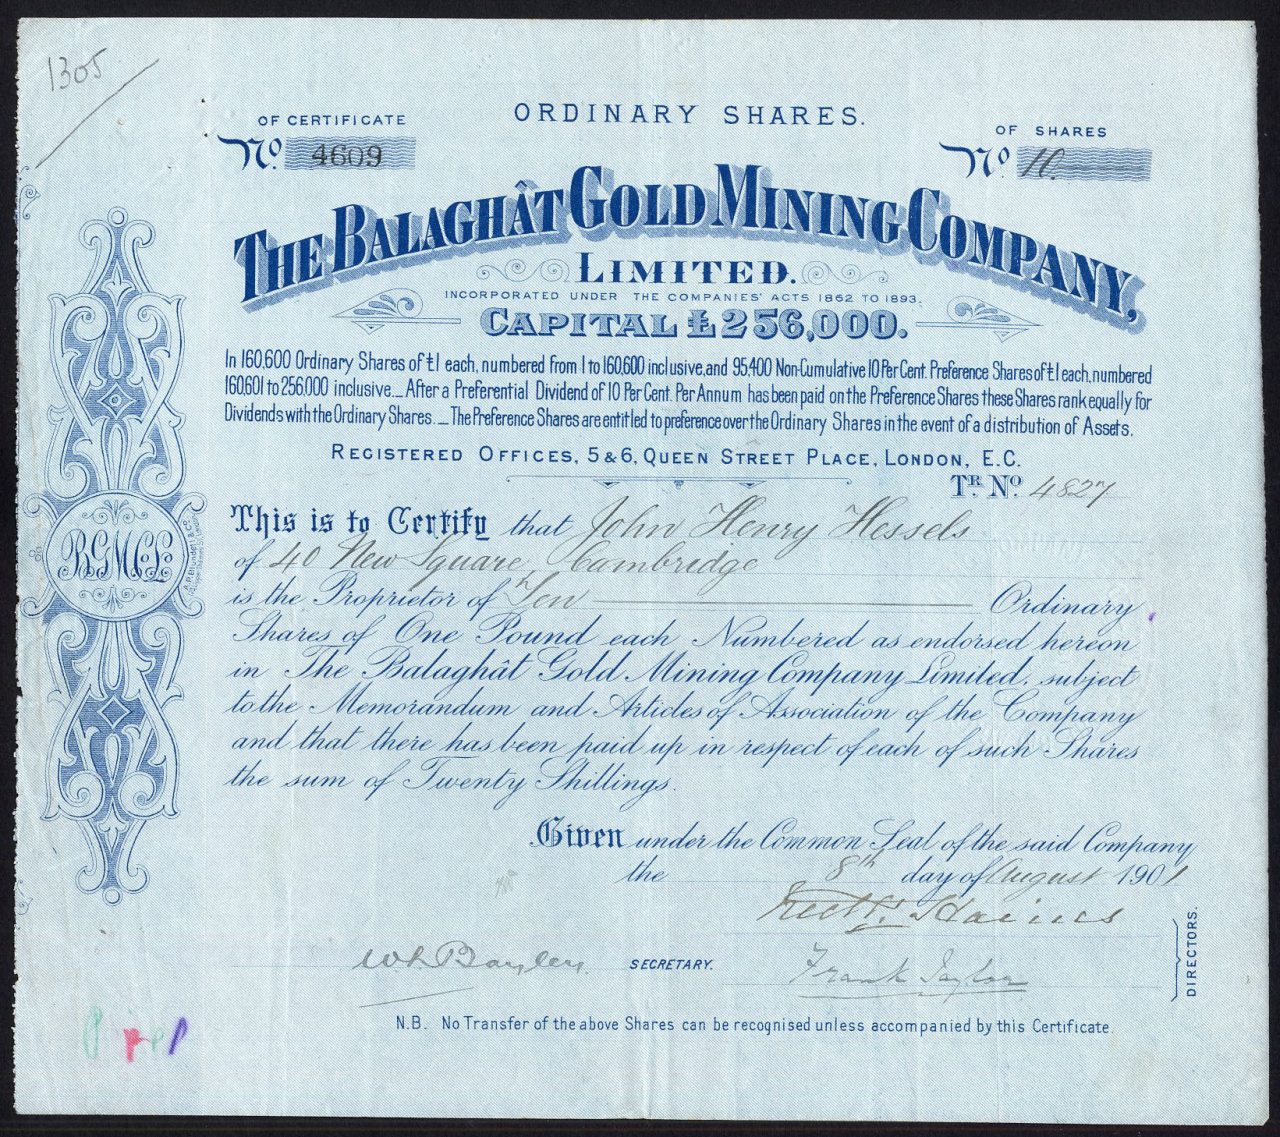 1305
ORDINARY SHARES.
OF CERTIFICATE
No. 4609
OF SHARES
No 10.
THE BALAGHÂT GOLD MINING COMPANY,
LIMITED.
INCORPORATED UNDER THE COMPANIES' ACTS 1862 TO 1893.
CAPITAL £256,000.
In 160,600 Ordinary Shares of £1 each, numbered from 1 to 160,600 inclusive, and 95,400 Non-Cumulative 10 Per Cent. Preference Shares of £1 each, numbered
160,601 to 256,000 inclusive._ After a Preferential Dividend of 10 Per Cent. Per Annum has been paid on the Preference Shares these Shares rank equally for
Dividends with the Ordinary Shares._ The Preference Shares are entitled to preference over the Ordinary Shares in the event of a distribution of Assets.
REGISTERED OFFICES, 5 & 6, QUEEN STREET PLACE, LONDON, E.C.
TR. No. 4827
This is to Certify that John Henry Hessels
of 40 New Square, Cambridge
is the Proprietor of Ten Ordinary
Shares of One Pound each Numbered as endorsed hereon
in The Balaghât Gold Mining Company Limited, subject
to the Memorandum and Articles of Association of the Company
and that there has been paid up in respect of each of such Shares
the sum of Twenty Shillings.
B.G.M.Co.L.
Given under the Common Seal of the said Company
the 8th day of August 1901
Haines
SECRETARY.
Frank Taylor
DIRECTORS.
N.B. No Transfer of the above Shares can be recognised unless accompanied by this Certificate.